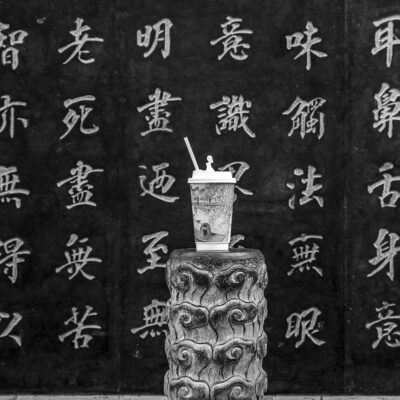 耳鼻舌身意
味觸法無眼
意識
明盡迺至無
老死盡無苦
智亦無得以